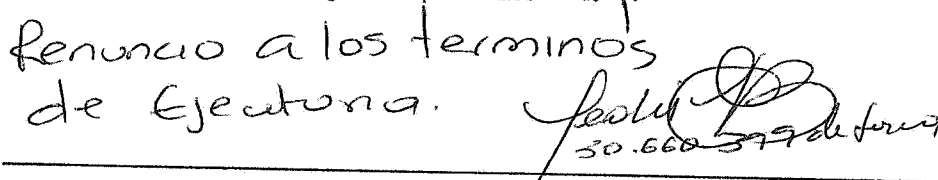 Renuncio a los terminos
de Ejecutoria.
30.660.399 de Lorica